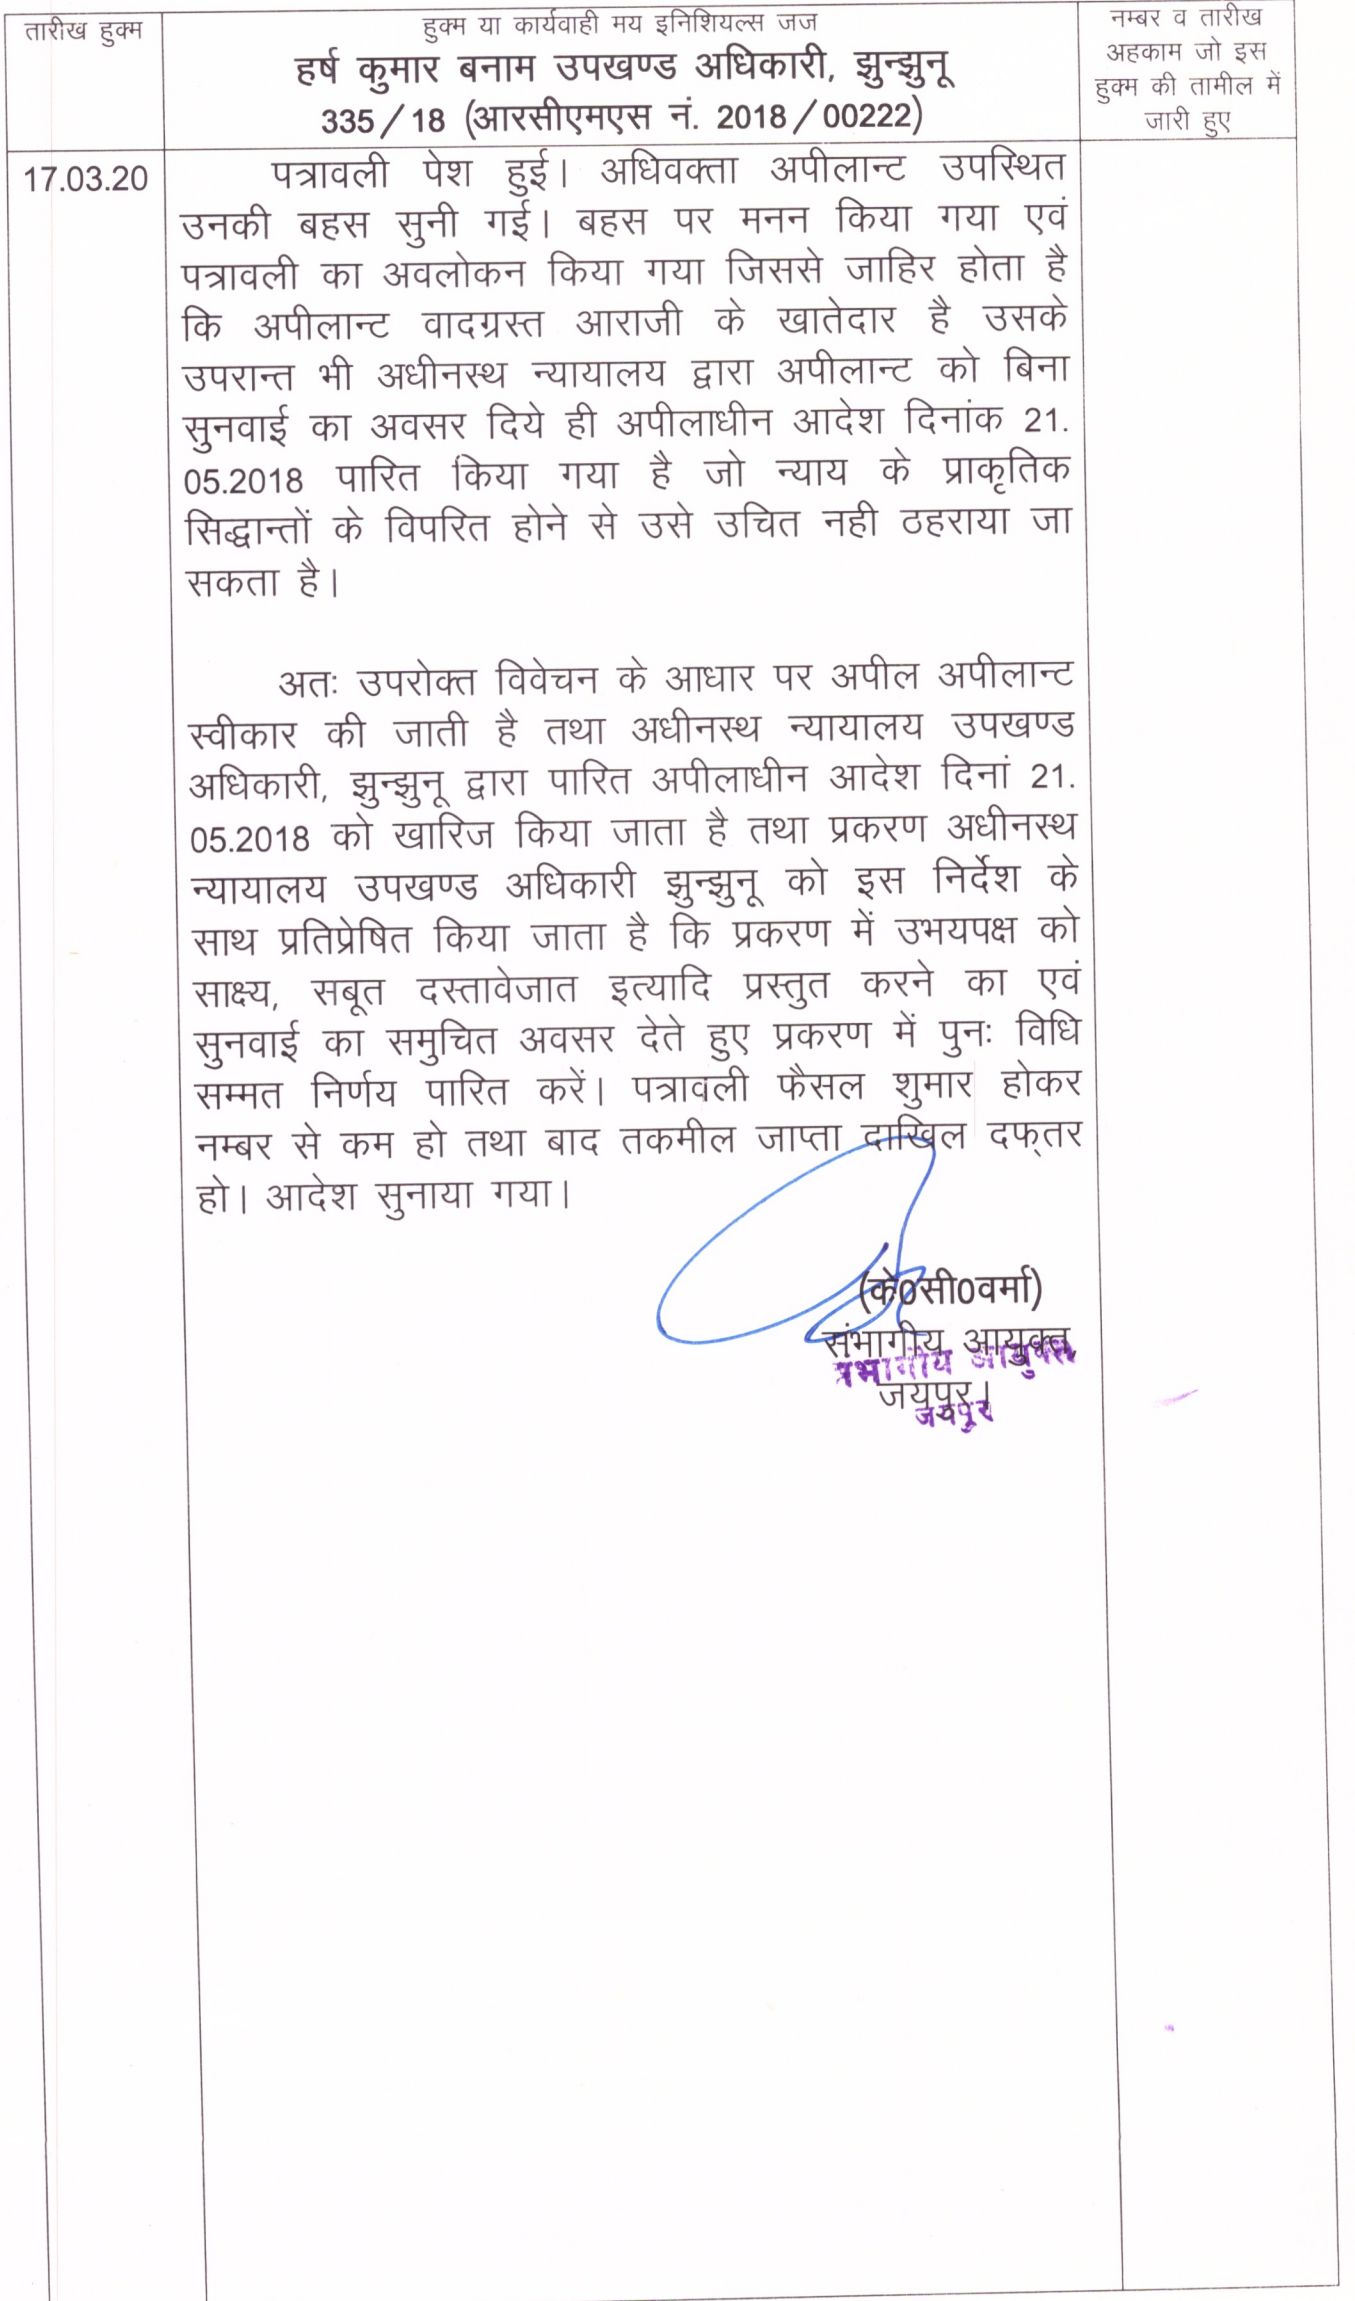 तारीख हुक्म
हुक्म या कार्यवाही मय इनिशियल्स जज
हर्ष कुमार बनाम उपखण्ड अधिकारी, झुन्झुनू
335/18 (आरसीएमएस नं. 2018/00222)
नम्बर व तारीख
अहकाम जो इस
हुक्म की तामील में
जारी हुए
17.03.20
पत्रावली पेश हुई। अधिवक्ता अपीलान्ट उपस्थित
उनकी बहस सुनी गई। बहस पर मनन किया गया एवं
पत्रावली का अवलोकन किया गया जिससे जाहिर होता है
कि अपीलान्ट वादग्रस्त आराजी के खातेदार है उसके
उपरान्त भी अधीनस्थ न्यायालय द्वारा अपीलान्ट को बिना
सुनवाई का अवसर दिये ही अपीलाधीन आदेश दिनांक 21.
05.2018 पारित किया गया है जो न्याय के प्राकृतिक
सिद्धान्तों के विपरित होने से उसे उचित नही ठहराया जा
सकता है।
अतः उपरोक्त विवेचन के आधार पर अपील अपीलान्ट
स्वीकार की जाती है तथा अधीनस्थ न्यायालय उपखण्ड
अधिकारी, झुन्झुनू द्वारा पारित अपीलाधीन आदेश दिनां 21.
05.2018 को खारिज किया जाता है तथा प्रकरण अधीनस्थ
न्यायालय उपखण्ड अधिकारी झुन्झुनू को इस निर्देश के
साथ प्रतिप्रेषित किया जाता है कि प्रकरण में उभयपक्ष को
साक्ष्य, सबूत दस्तावेजात इत्यादि प्रस्तुत करने का एवं
सुनवाई का समुचित अवसर देते हुए प्रकरण में पुनः विधि
सम्मत निर्णय पारित करें। पत्रावली फैसल शुमार होकर
नम्बर से कम हो तथा बाद तकमील जाप्ता दाखिल दफ्तर
हो। आदेश सुनाया गया।
(के0सी0वर्मा)
संभागीय आयुक्त,
जयपुर।
जयपुर